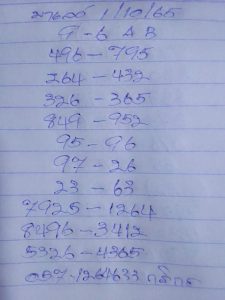 มาเลย์ 1/10/65
9 - 6 A B
496 - 795
264 - 432
326 - 365
849 - 952
95 - 96
97 - 26
23 - 63
7925 - 1264
8496 - 3412
5326 - 4365
057-1264633